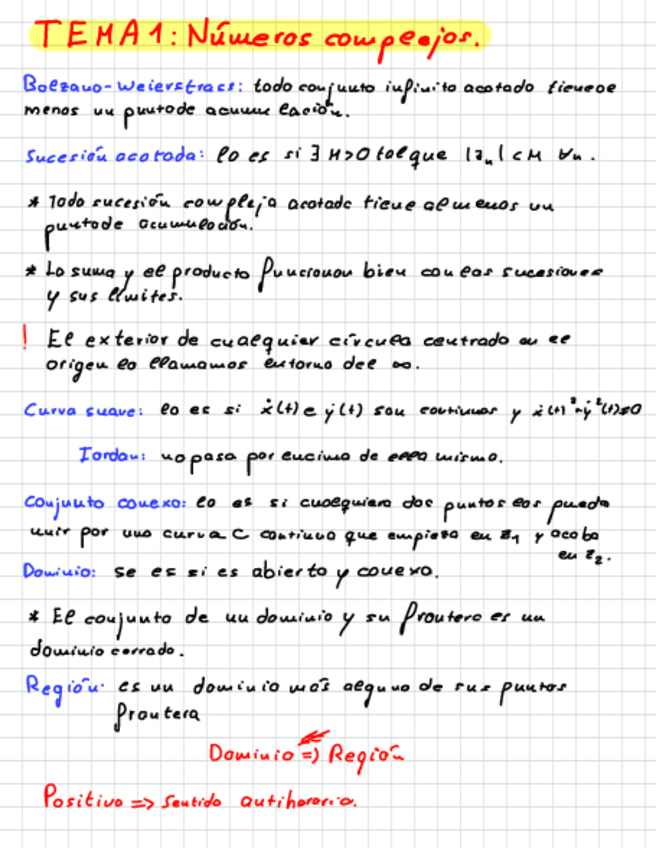 TEMA1: Números complejos.
Bolzano-Weierstrass: todo conjunto infinito acotado tiene al
menos un punto de acumulación.
Sucesión acotada: lo es si ∃ M>0 tal que |z_n| < M ∀n.
* Toda sucesión compleja acotada tiene al menos un
punto de acumulación.
* La suma y el producto funcionan bien con las sucesiones
y sus límites.
! El exterior de cualquier círculo centrado en el
origen lo llamamos entorno del ∞.
Curva suave: lo es si ẋ(t) e ẏ(t) son continuas y ẋ(t)²+ẏ²(t)≠0
Jordan: no pasa por encima de ella misma.
Conjunto conexo: lo es si cualquiera dos puntos los puedo
unir por una curva C continua que empieza en z₁ y acaba
en z₂.
Dominio: se es si es abierto y conexo.
* El conjunto de un dominio y su frontera es un
dominio cerrado.
Región: es un dominio más alguno de sus puntos
frontera
Dominio => Región
Positivo => Sentido antihorario.